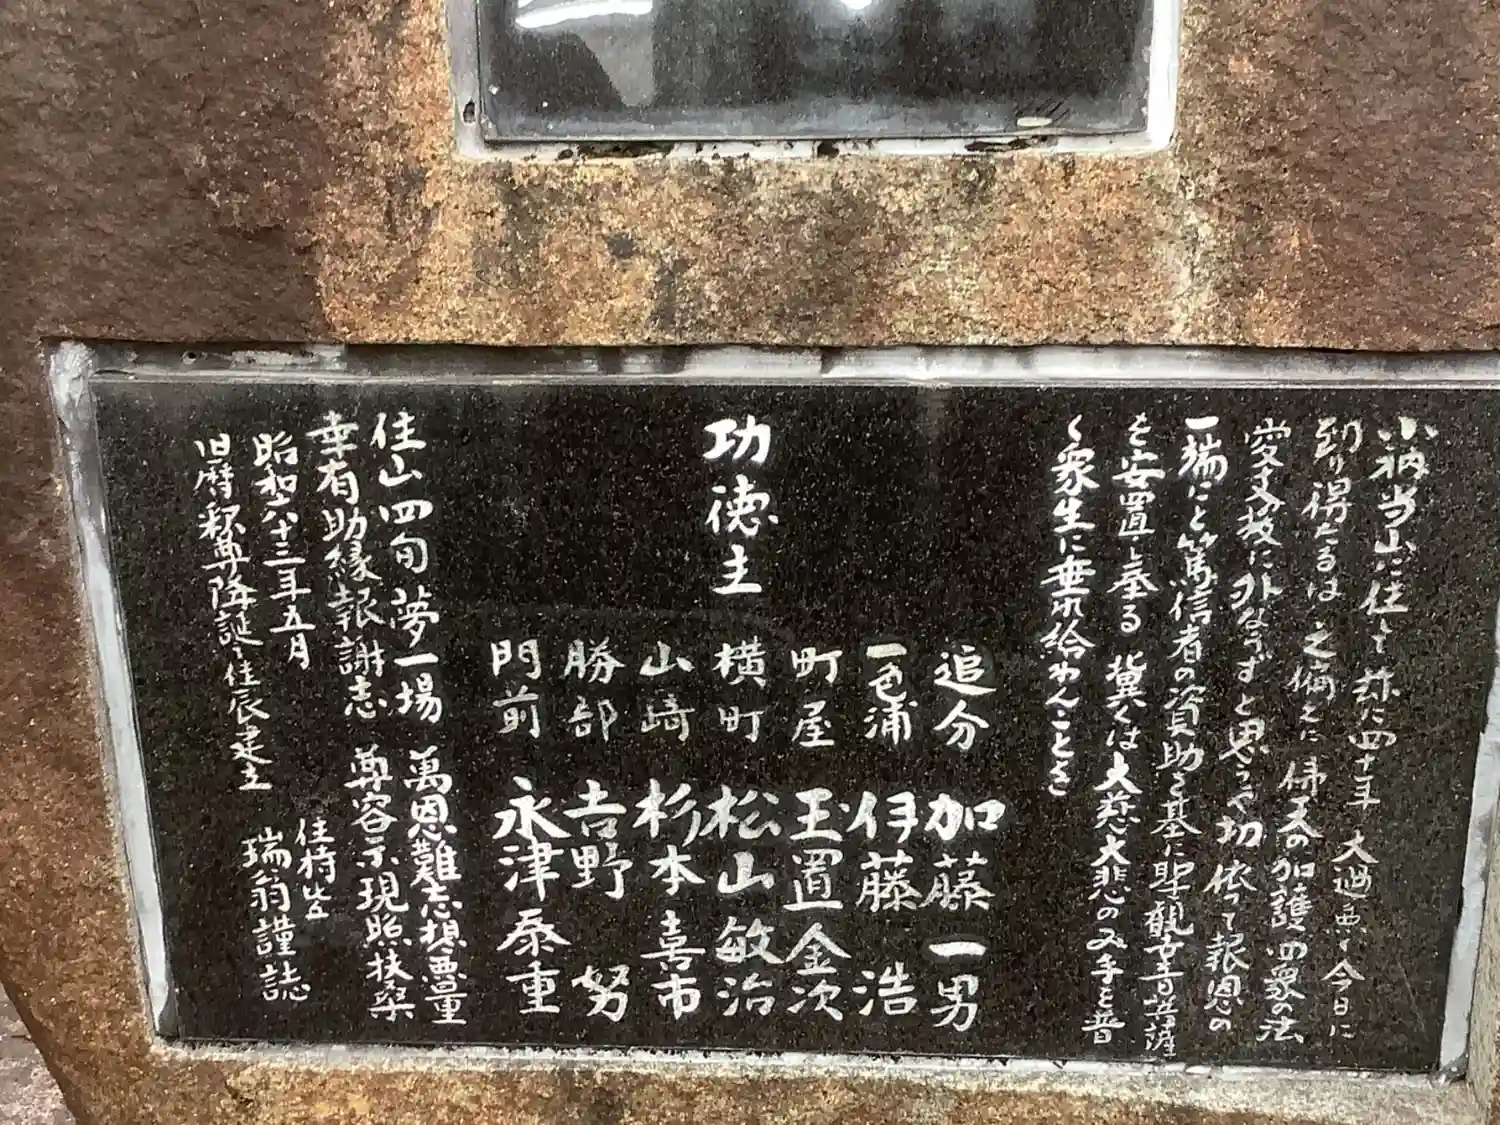 小衲当山に住して茲に四十年 大過無く今日に
到り得たるは 之偏えに 佛天の加護 四衆の法
愛支教に外ならずと思う也 切 依って報恩の
一端にと篤信者の資助を基に聖観世音菩薩
を安置し奉る 冀くは大慈大悲のみ手を普
く衆生に垂れ給わんことを
功徳主
追分 加藤一男
一色浦 伊藤 浩
町屋 玉置金次
横町 松山敏治
山崎 杉本喜市
勝部 吉野 努
門前 永津泰重
住山四旬夢一場 萬恩難忘想無量
幸有助縁報謝志 尊容示現照扶桑
昭和六十三年五月
旧暦釈尊降誕佳辰建立
住持
瑞翁謹誌